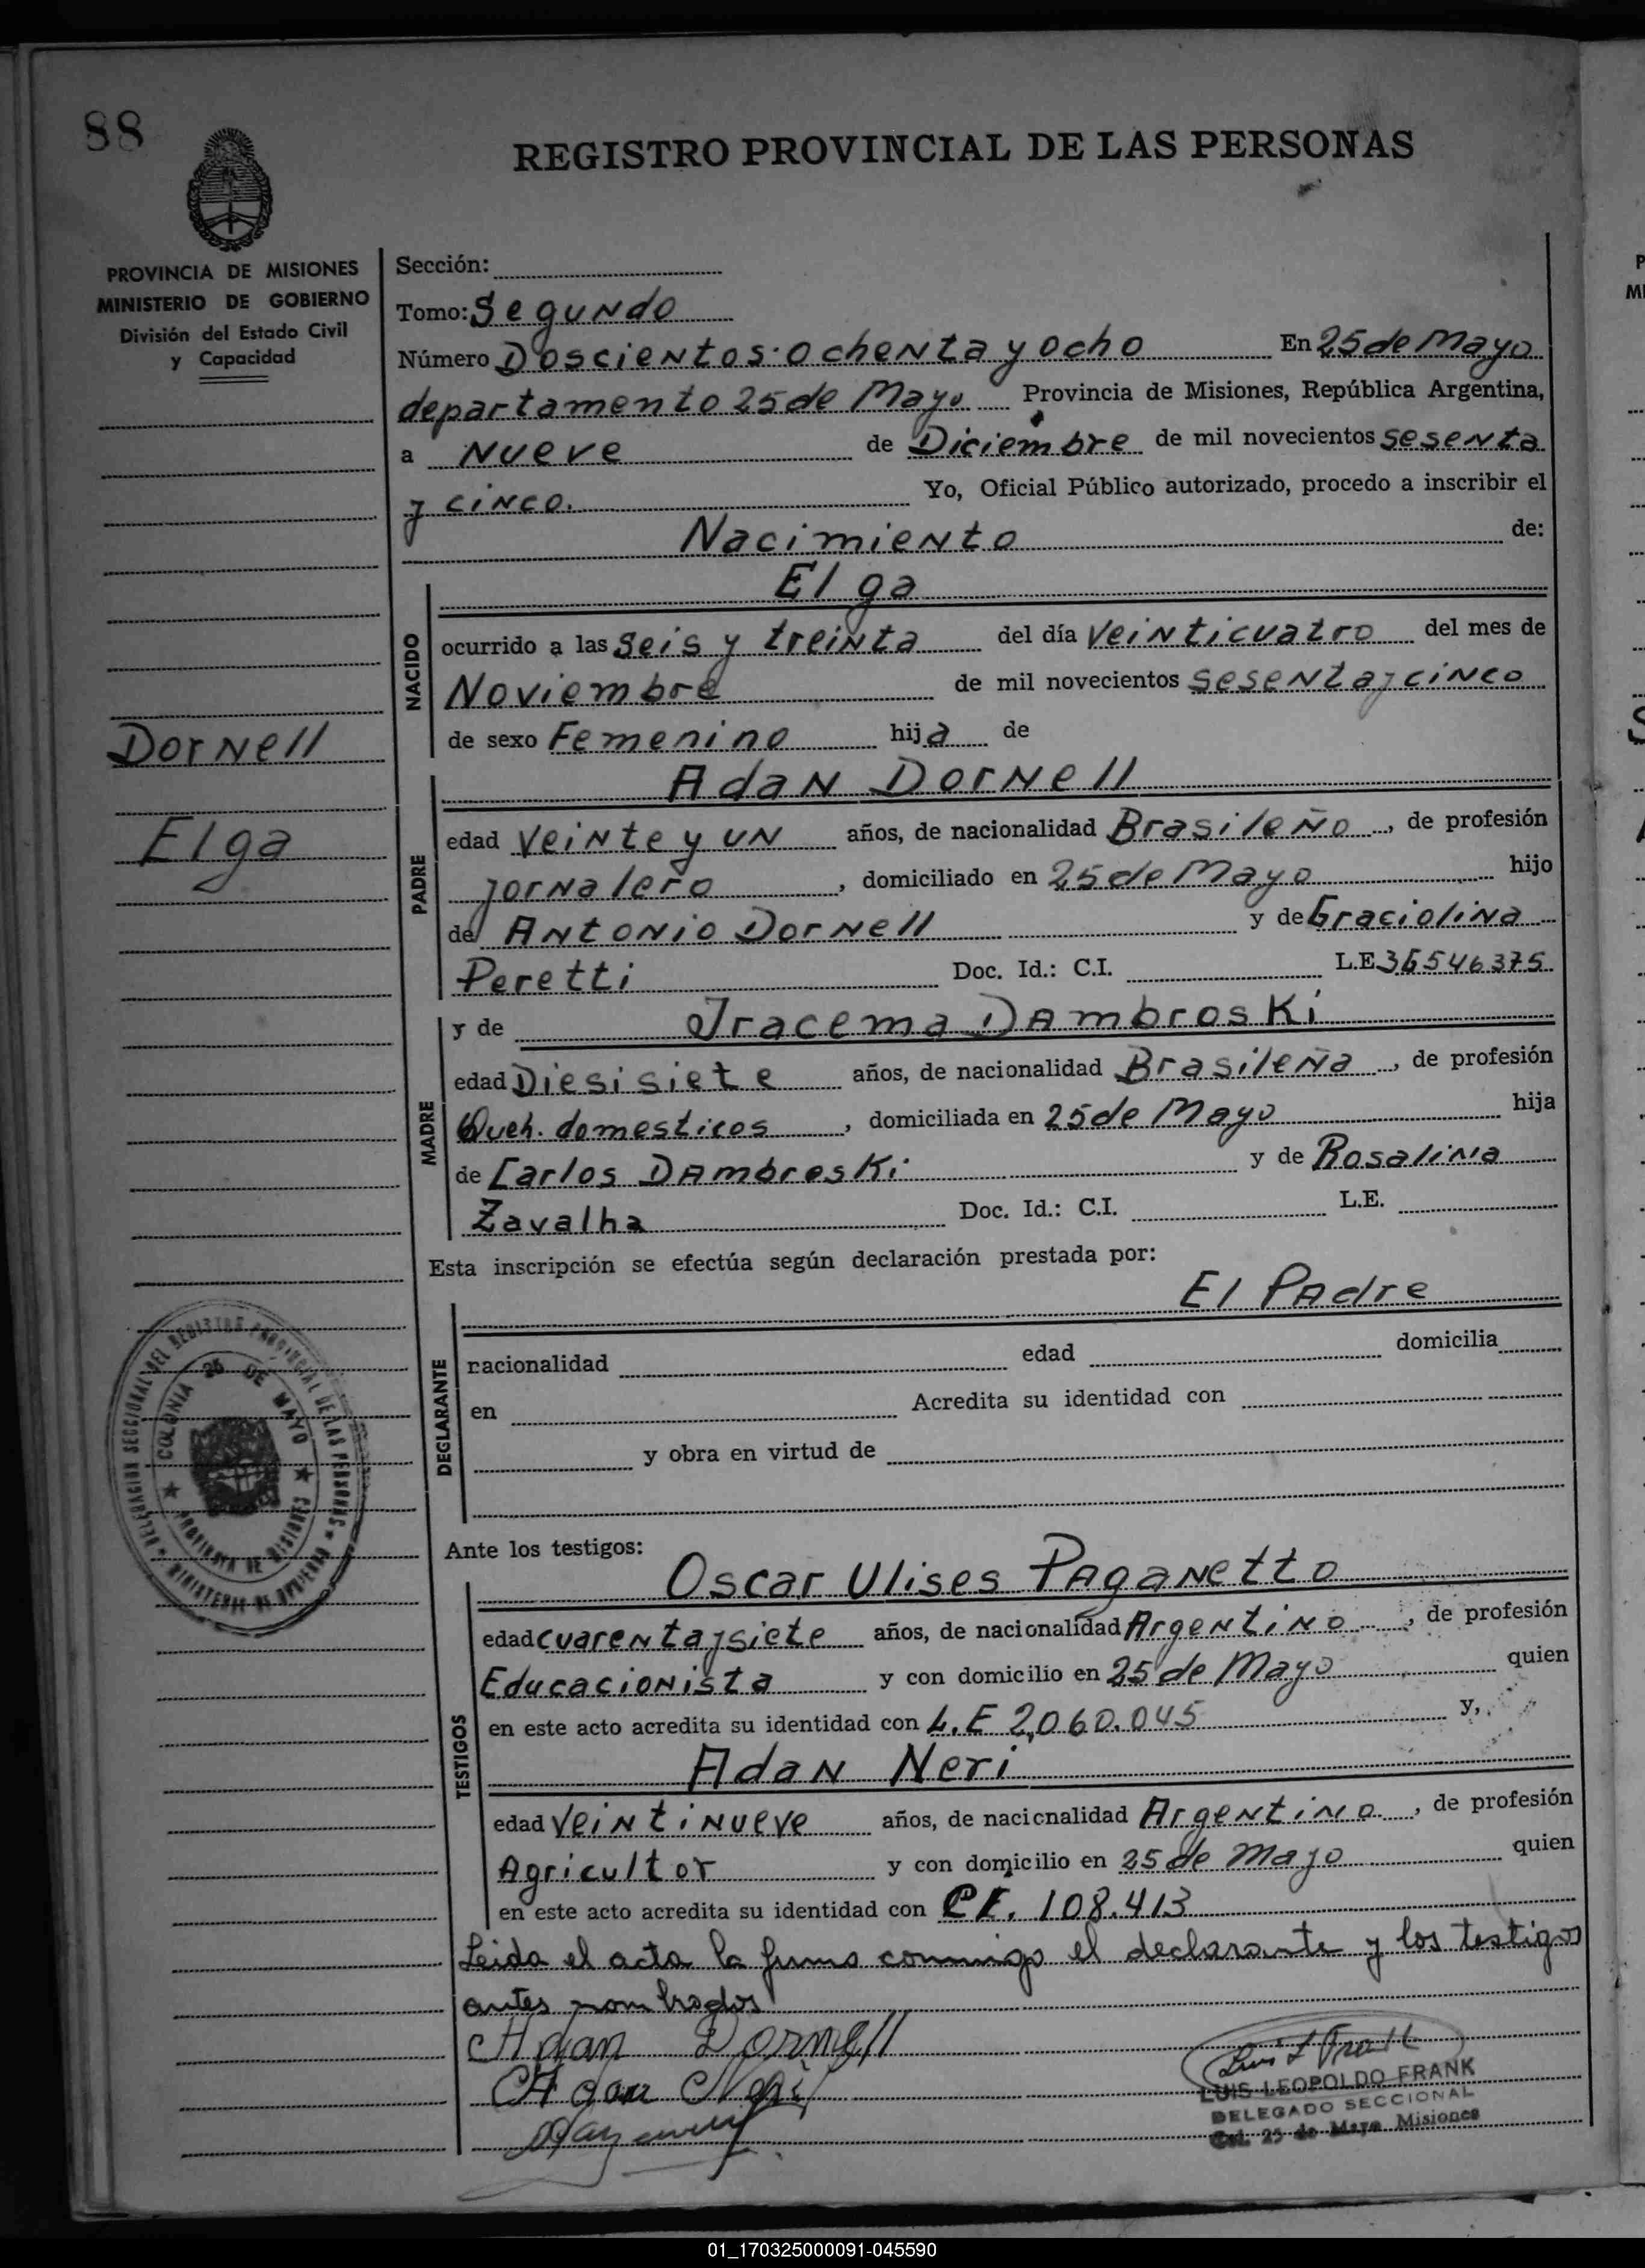 88
REGISTRO PROVINCIAL DE LAS PERSONAS
PROVINCIA DE MISIONES
MINISTERIO DE GOBIERNO
División del Estado Civil
y Capacidad
Sección:
Tomo: Segundo
Número Doscientos ochenta y ocho En 25 de Mayo
departamento 25 de Mayo Provincia de Misiones, República Argentina,
a Nueve de Diciembre de mil novecientos sesenta
y cinco. Yo, Oficial Público autorizado, procedo a inscribir el
Nacimiento de:
NACIDO
Elga
ocurrido a las seis y treinta del día Veinticuatro del mes de
Noviembre de mil novecientos sesenta y cinco
de sexo Femenino hija de
Dornell
Elga
PADRE
Adan Dornell
edad Veinte y un años, de nacionalidad Brasileño, de profesión
jornalero, domiciliado en 25 de Mayo hijo
de Antonio Dornell y de Graciolina
Peretti Doc. Id.: C.I. L.E 36546375
MADRE
y de Iracema Dambroski
edad Diesisiete años, de nacionalidad Brasileña, de profesión
Queh. domesticos, domiciliada en 25 de Mayo hija
de Carlos Dambroski y de Rosalina
Zavalha Doc. Id.: C.I. L.E.
Esta inscripción se efectúa según declaración prestada por:
DEGLARANTE
El Padre
racionalidad edad domicilia
en Acredita su identidad con
y obra en virtud de
DELEGACION SECCIONAL DEL REGISTRO PROVINCIAL DE LAS PERSONAS
COLONIA 25 DE MAYO
PROVINCIA DE MISIONES
MINISTERIO DE GOBIERNO
Ante los testigos:
TESTIGOS
Oscar Ulises Paganetto
edad cuarenta y siete años, de nacionalidad Argentino, de profesión
Educacionista y con domicilio en 25 de Mayo quien
en este acto acredita su identidad con L.E 2,060.045 y,
Adan Neri
edad Veintinueve años, de nacicnalidad Argentino, de profesión
Agricultor y con domicilio en 25 de Mayo quien
en este acto acredita su identidad con CI. 108.413
Leida el acta la firma conmigo el declarante y los testigos
antes nombrados
Adan Dornell
Adan Neri
Luis L Frank
LUIS LEOPOLDO FRANK
DELEGADO SECCIONAL
Col. 25 de Mayo Misiones
01_170325000091-045590